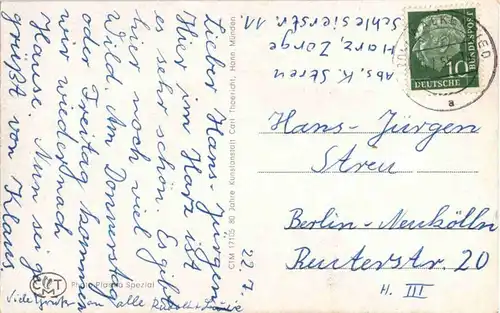 Lieber Hans-Jürgen
Hier im Harz ist
es sehr schön. Es gibt
hier noch viel
Wild. Am Donnerstag
oder Freitag kommen
wir wieder nach
Hause. Nun sei ge-
grüßt von Klaus,
Viele Grüße an alle
22.7.
CTM 17105 80 Jahre Kunstanstalt Carl Thoericht, Hann. Münden
CTM
Photo Plastic Spezial
Abs. K. Streu
Harz, Zorge
Schlesierstr. 11
DEUTSCHE BUNDESPOST
10
a
Hans-Jürgen
Streu
Berlin-Neukölln
Reuterstr. 20
H. III